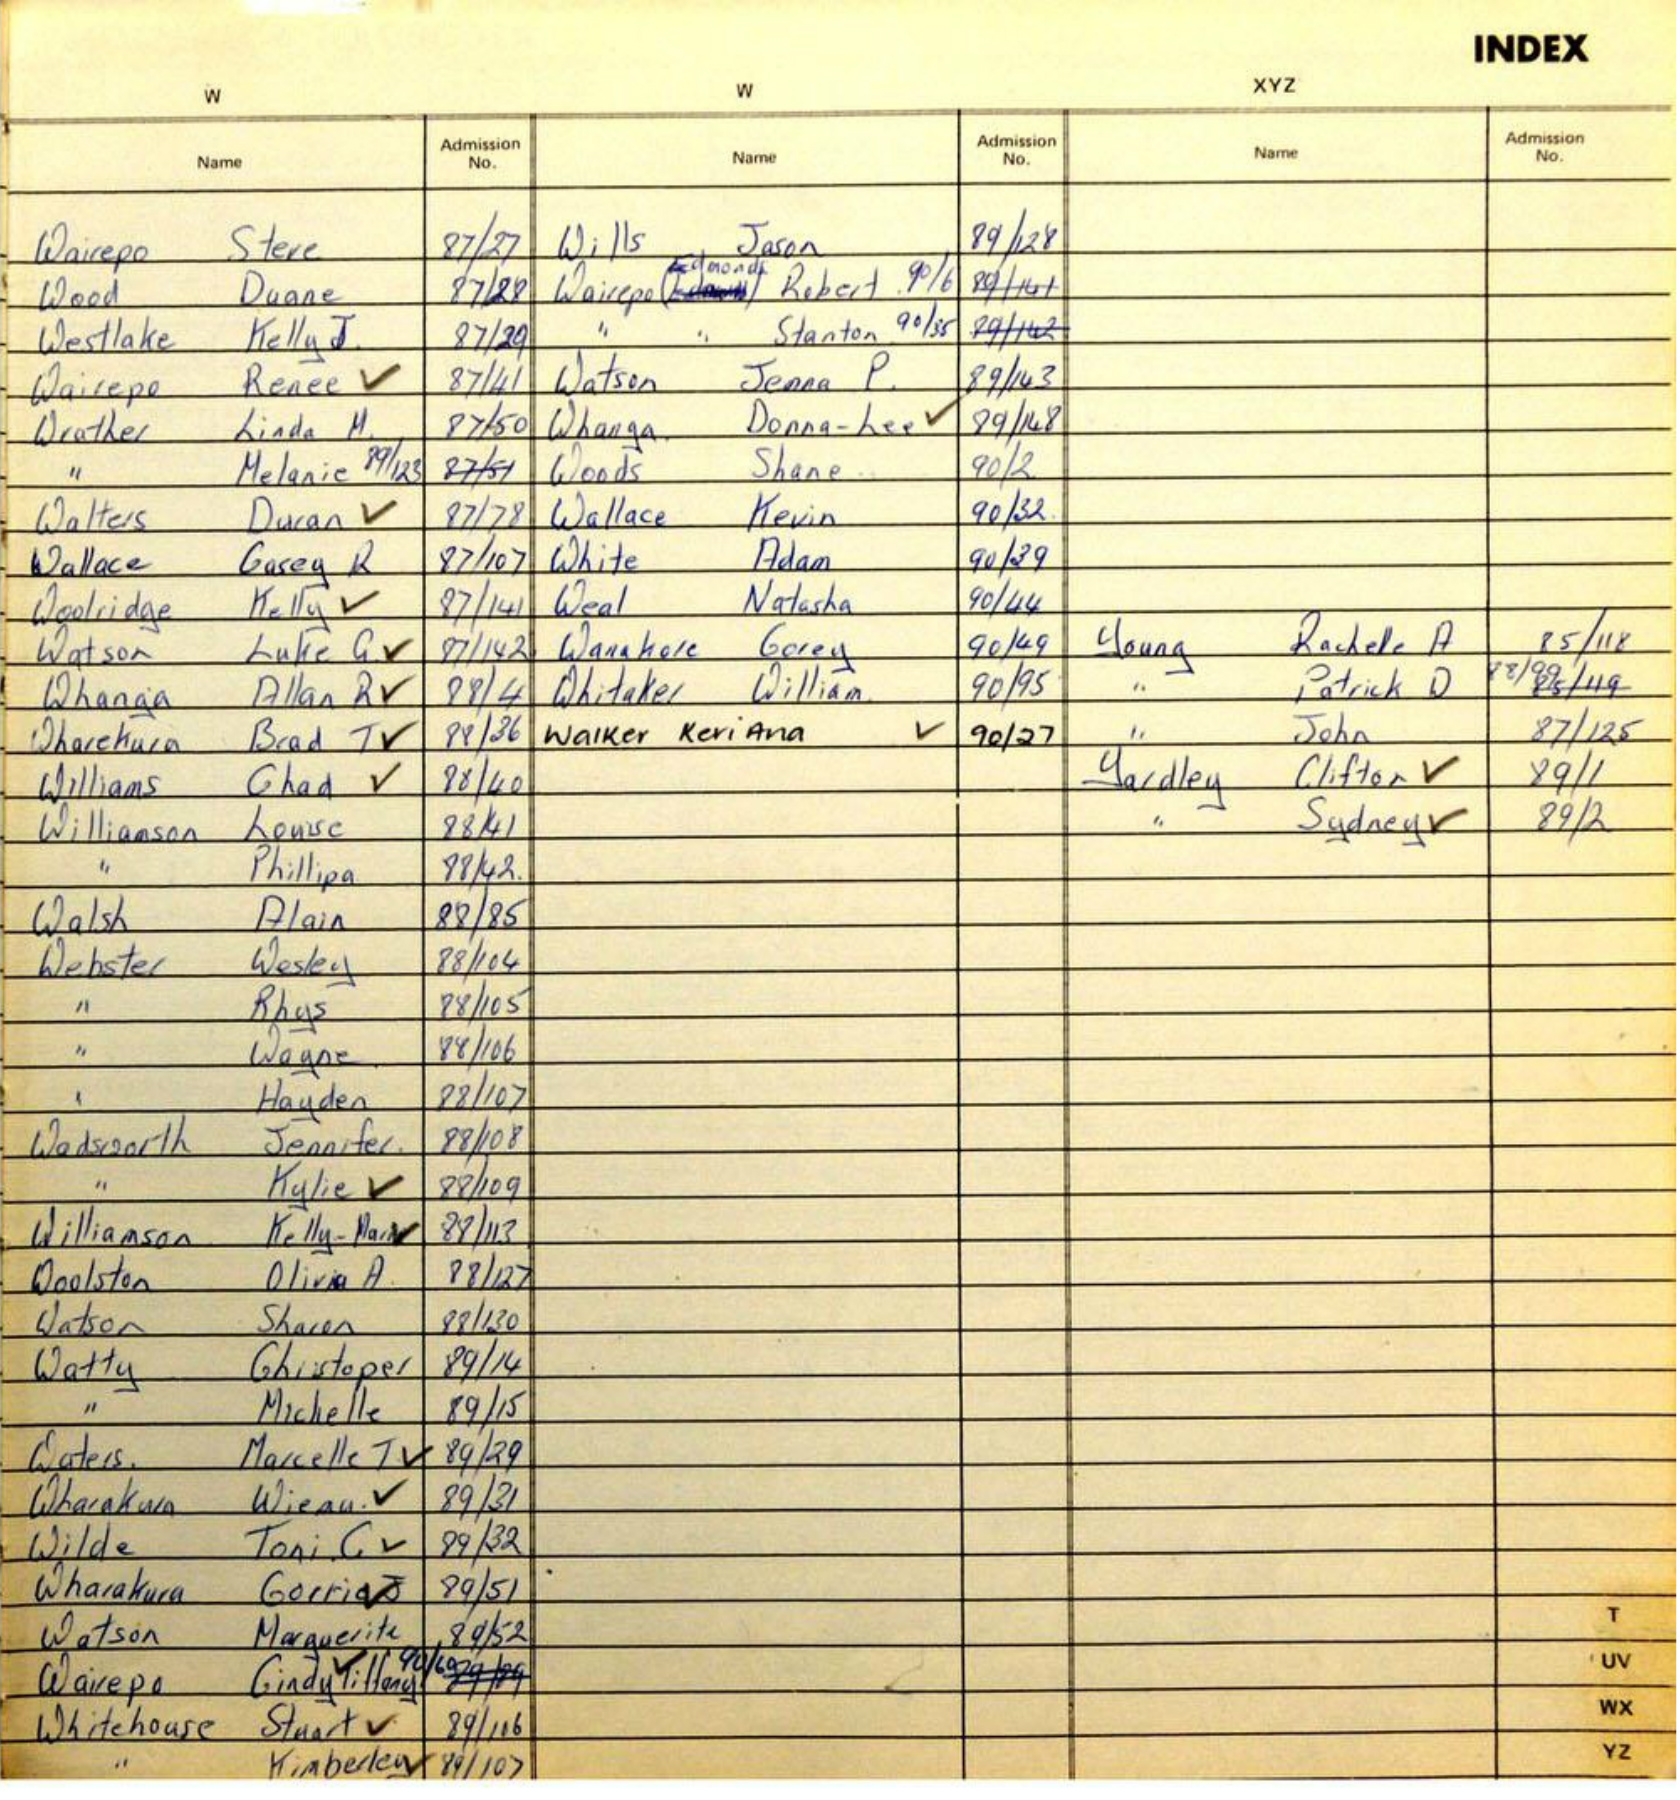 INDEX
W
Name Admission No.
Wairepo Steve 87/27
Wood Duane 87/28
Westlake Kelly J. 87/29
Wairepo Renee ✓ 87/41
Wrather Linda M. 87/50
" Melanie 89/123 87/51
Walters Duran ✓ 87/78
Wallace Corey R 87/107
Woolridge Kelly ✓ 87/141
Watson Luke C ✓ 87/142
Whanga Allan R ✓ 88/4
Wharekura Brad T ✓ 88/36
Williams Chad ✓ 88/40
Williamson Louise 88/41
" Phillipa 88/42.
Walsh Alain 88/85
Webster Wesley 88/104
" Rhys 88/105
" Wayne 88/106
" Hayden 88/107
Wadsworth Jennifer. 88/108
" Kylie ✓ 88/109
Williamson Kelly-Marie ✓ 88/113
Woolston Olivia A. 88/127
Watson Sharon 88/130
Watty Christoper 89/14
" Michelle 89/15
Waters. Marcelle T ✓ 89/29
Wharakura Wieau. ✓ 89/31
Wilde Toni. C ✓ 89/32
Wharakura Corria J ✓ 89/51
Watson Marguerite 89/52
Wairepo Cindy Tiffany ✓ 90/60 89/89
Whitehouse Stuart ✓ 89/106
" Kimberley ✓ 89/107
W
Name Admission No.
Wills Jason 89/128
Wairepo (Edmonds) Robert 90/6 89/141
" " Stanton 90/35 89/142
Watson Jenna P. 89/143
Whanga. Donna-Lee ✓ 89/148
Woods Shane 90/2
Wallace Kevin 90/32.
White Adam 90/39
Weal Natasha 90/44
Wanakore Corey 90/49
Whitaker William. 90/95
Walker Keri Ana ✓ 90/27
XYZ
Name Admission No.
Young Rachelle A 85/118
" Patrick D 88/99 85/119
" John 87/125
Yardley Clifton ✓ 89/1
" Sydney ✓ 89/2
T
UV
WX
YZ